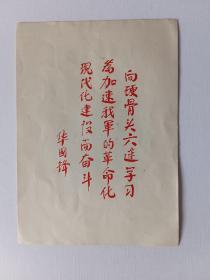 向硬骨头六连学习
为加速我军的革命化
现代化建设而奋斗
华国锋